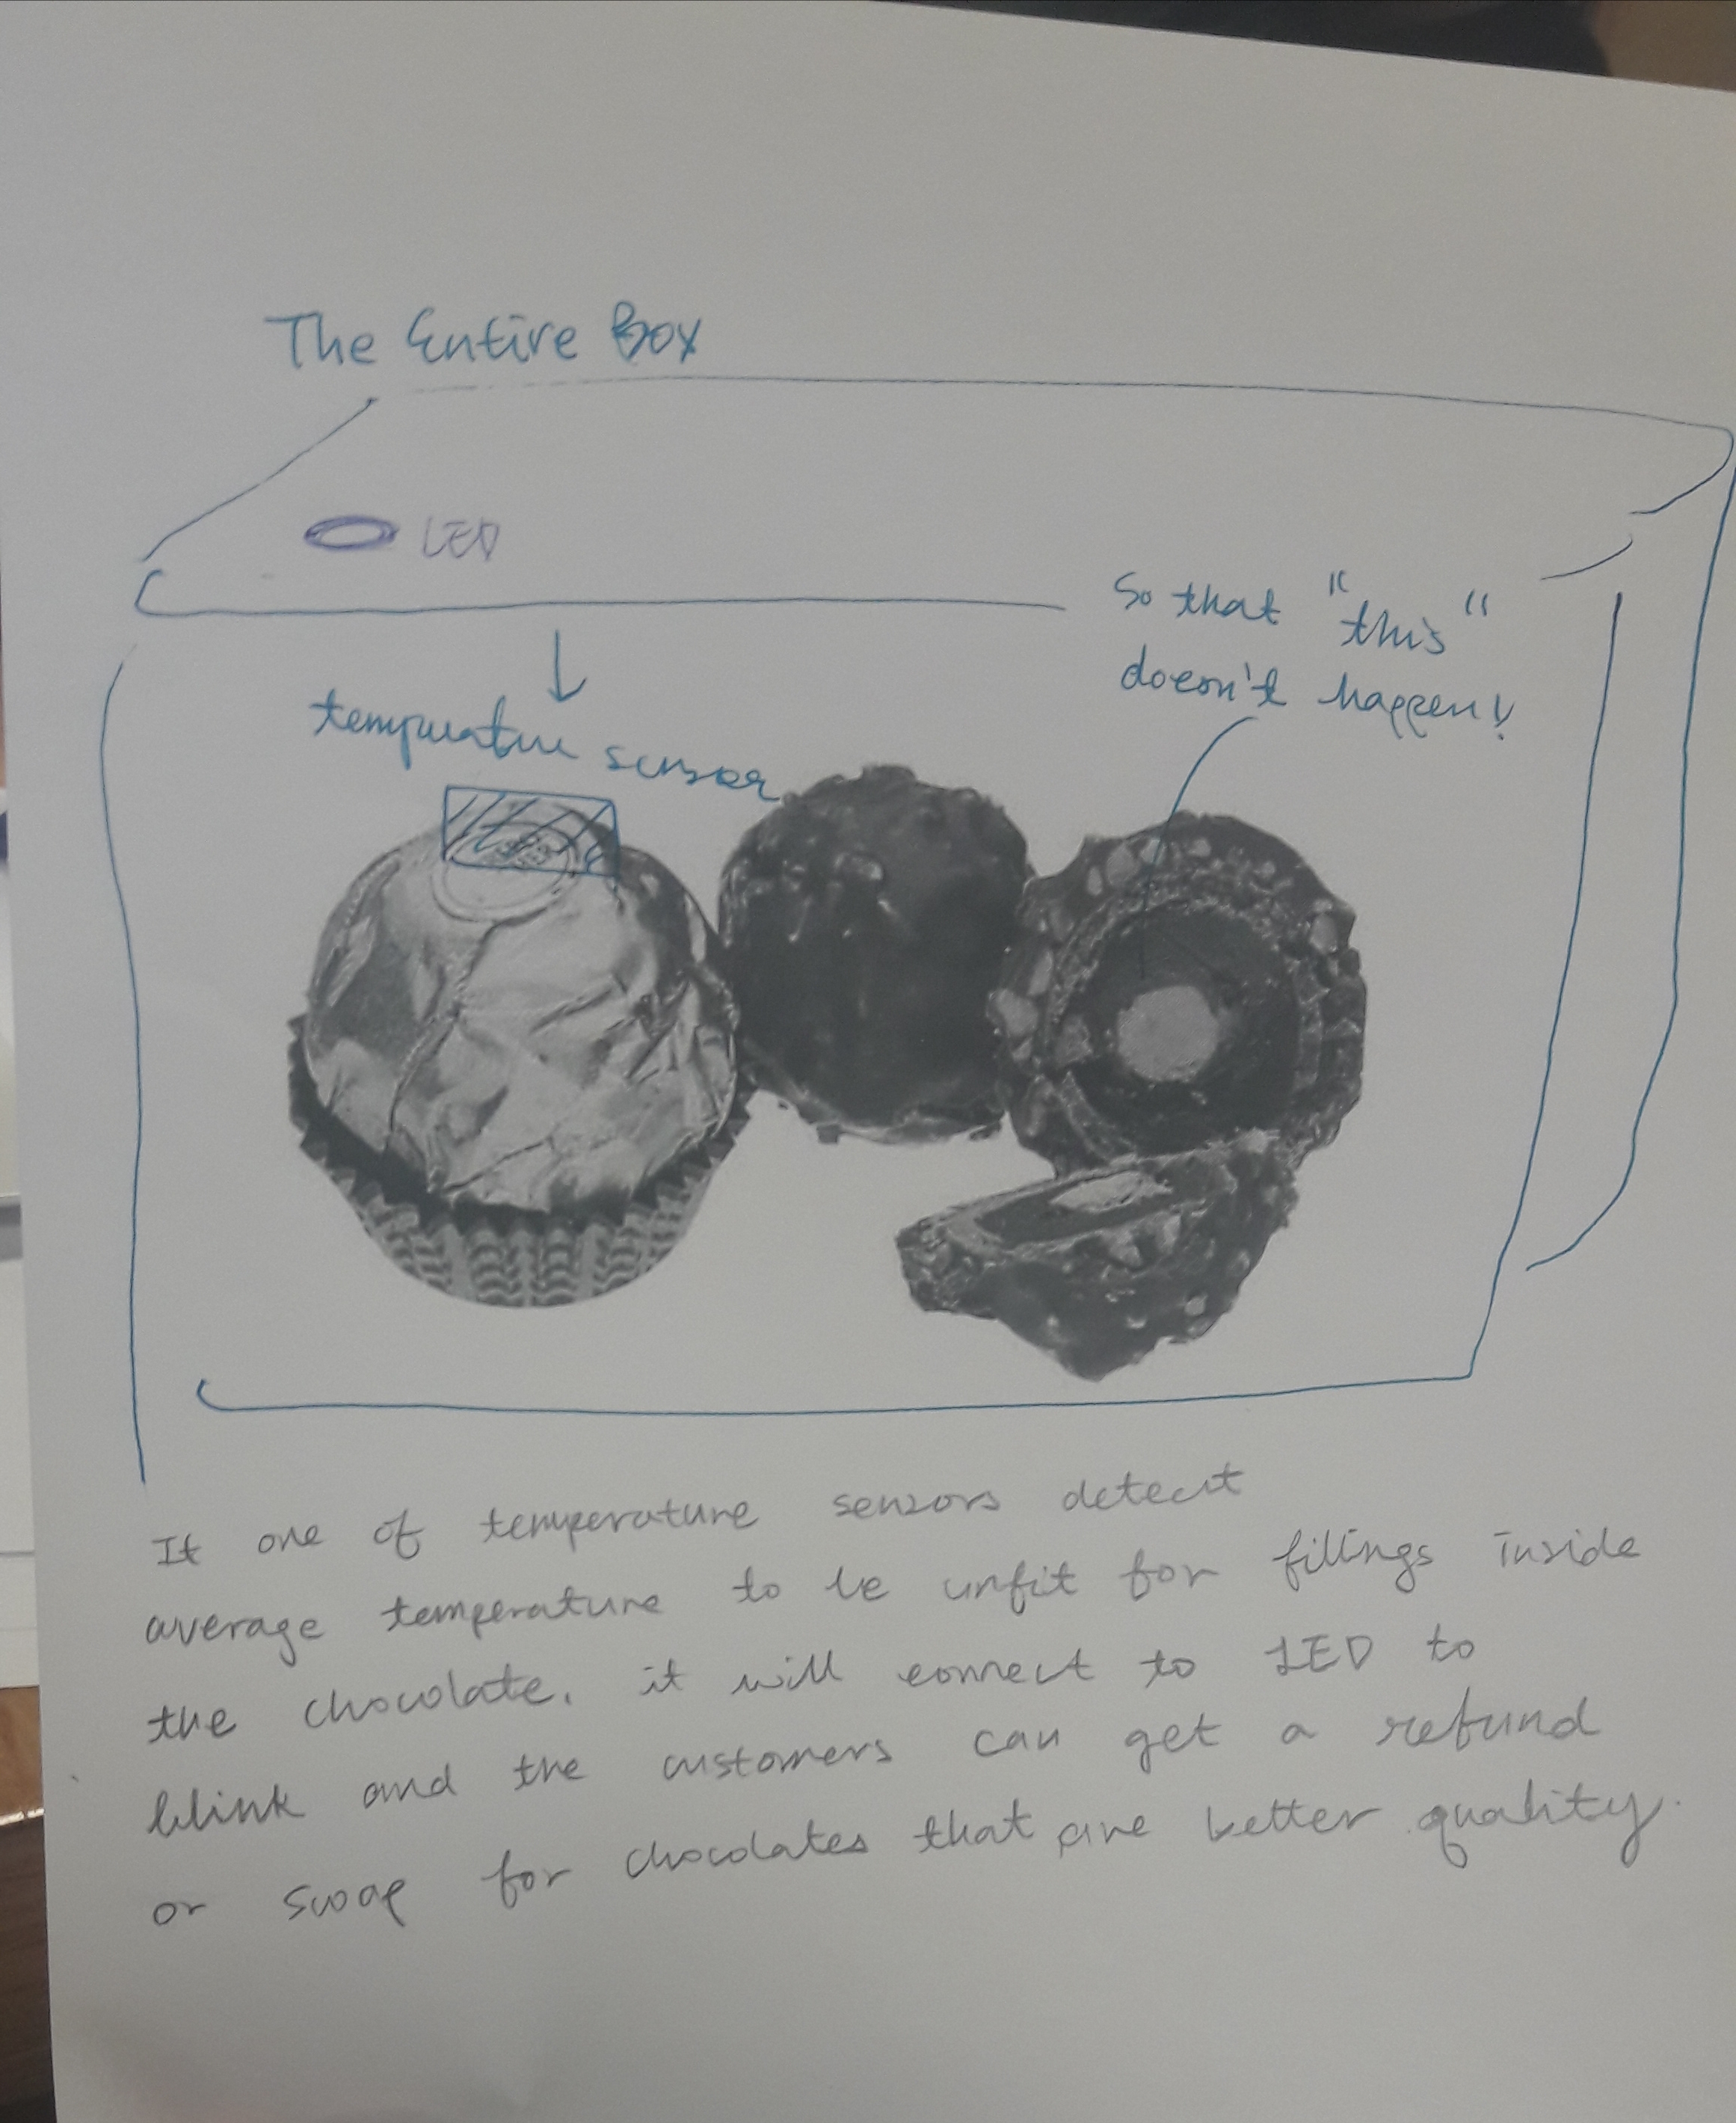 The Entire Box
LED
So that "this"
doesn't happen!
temperature sensor
If one of temperature sensors detect
average temperature to be unfit for fillings inside
the chocolate, it will connect to LED to
blink and the customers can get a refund
or swap for chocolates that are better quality.